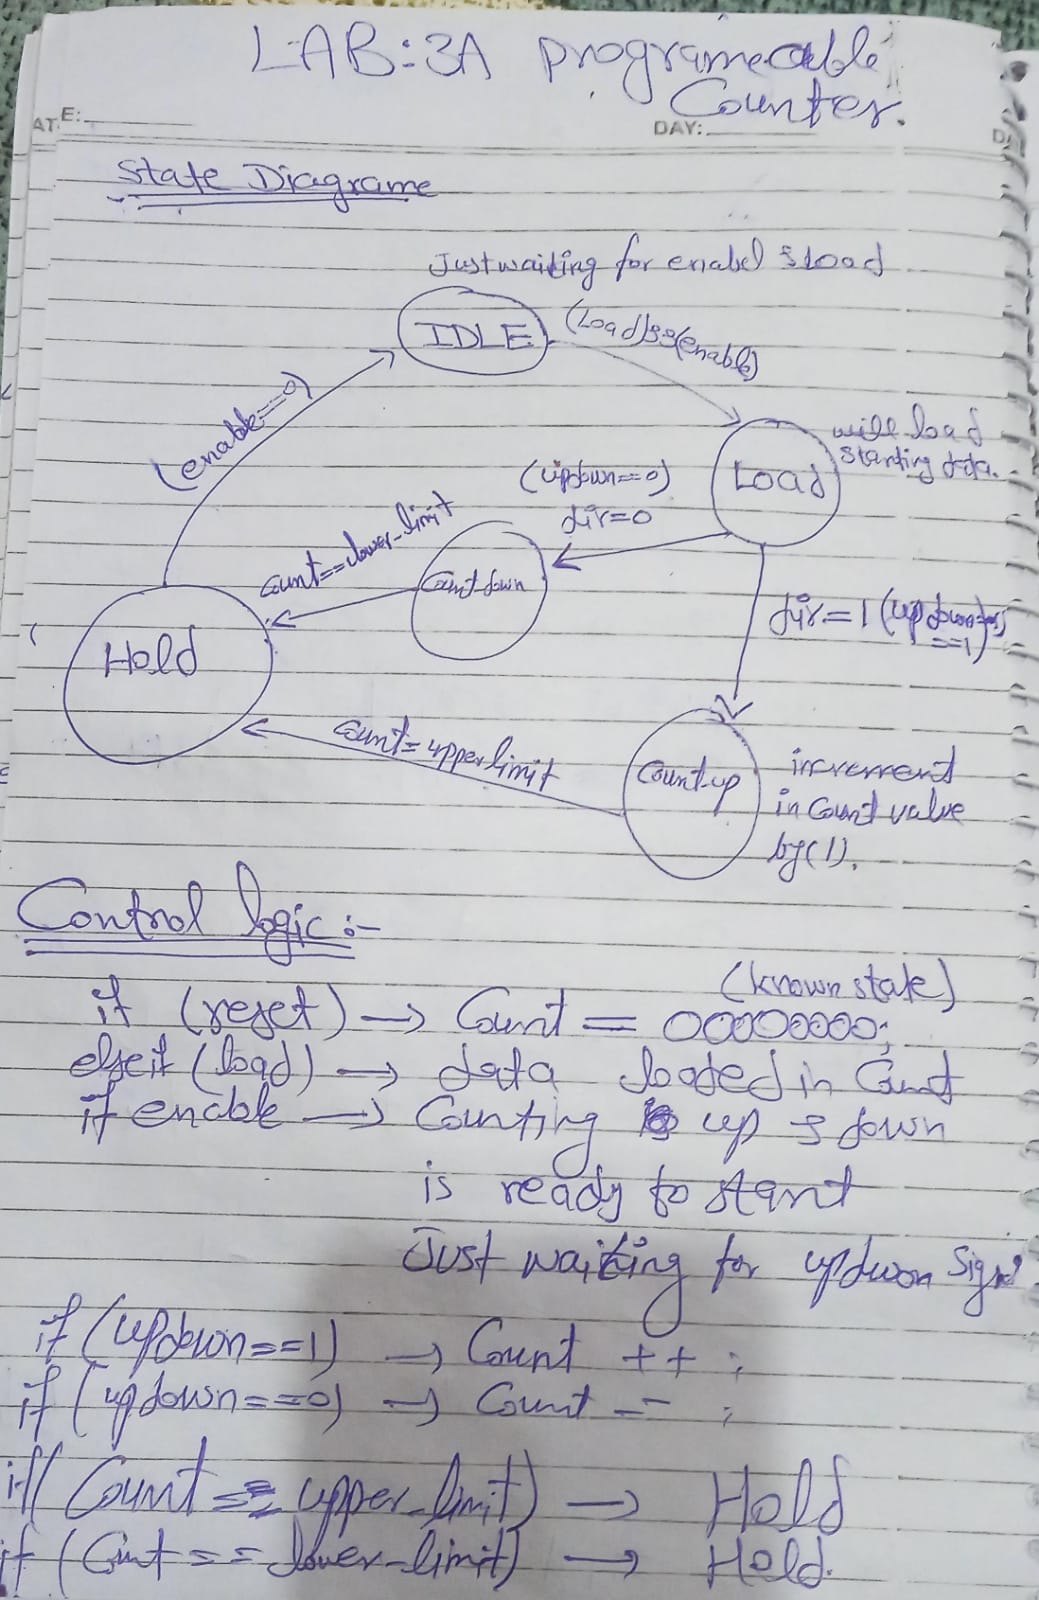 LAB:3A programeable
Counter.
ATE:
DAY:
State Diagrame
Just waiting for enabel & Load
IDLE
(Load)&&(enable)
(enable==0)
will load
starting data.
Load
(updown==0)
dir=0
count==lower_limit
Count down
dir=1 (updown
==1)
Hold
count=upper limit
Count up
increment
in Count value
by(1).
Control logic:-
(known state)
if (reset) → Count = 00000000;
else if (load) → data loaded in Count
if enable → Counting up & down
is ready to start
Just waiting for updwon Signal
if (updown==1) → Count ++ ;
if (updown==0) → Count -- ;
if( Count == upper_limit) → Hold
if (Count == lower_limit) → Hold.